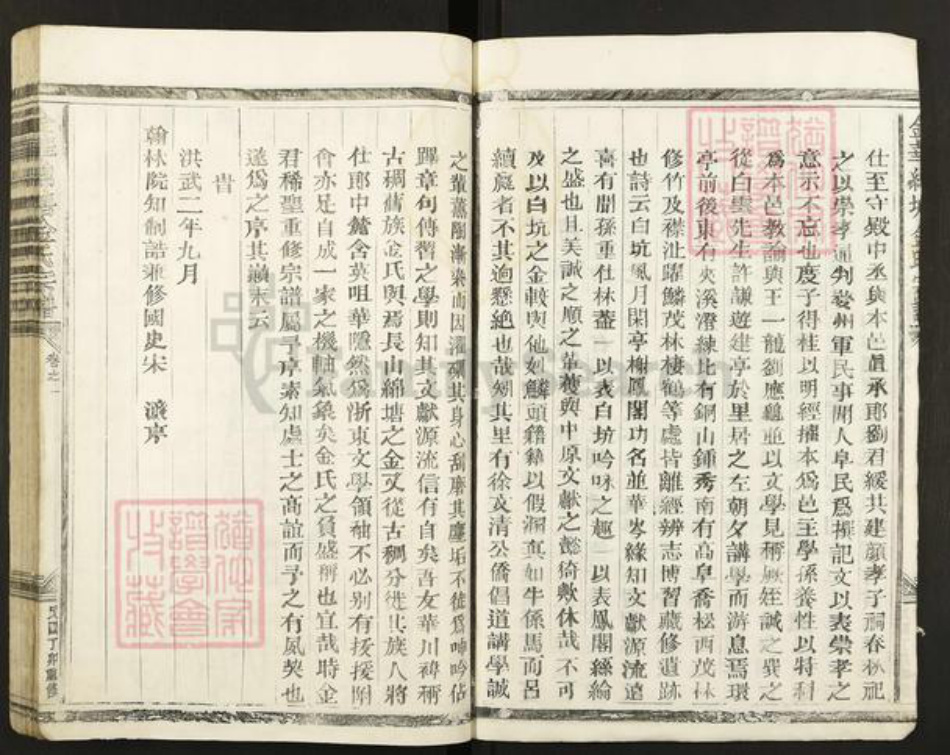 仕至守殿中丞與本邑眞承郎劉君緩共建顏孝子祠春秋祀
之以崇孝通判婺州軍民事聞人阜民爲撰記文以表崇孝之
意示不忘也度子得桂以明經擢本爲邑主學孫養性以特科
爲本邑教諭與王一龍劉應龜並以文學見稱厥姪誠之巽之
從白雲先生許謙遊建亭於里居之左朝夕講學而游息焉環
亭前後東有夾溪澄練北有銅山鍾秀南有高阜喬松西茂林
修竹及襟沚躍鱗茂林棲鶴等處皆離經辨志博習藏修遺跡
也詩云白坑風月閑亭榭鳳閣功名並華岑緣知文獻源流遠
喜有聞孫重仕林蓋一以表白坑吟咏之趣一以表鳳閣絲綸
之盛也且美誠之順之革穫與中原文獻之懿猗歟休哉不可
及以白坑之金較與他如鱗頭籍錄以假溷真如牛係馬而呂
續嬴者不其逈懸絶也哉矧其里有徐文清公僑倡道講學誠
之輩薰陶漸染而因濯磨其身心刮磨其塵垢不徒爲呻吟佔
畢章句傳習之學則知其文獻源流信有自矣吾友華川褘稱
古稠舊族金氏與焉長山綿塘之金又從古稠分徙其族人將
仕郎中含英咀華隱然爲浙東文學領袖不必別有援援附
會亦足自成一家之機軸氣象矣金氏之負盛稱也宜哉時金
君稀聖重修宗譜屬予序素知處士之高誼而予之有夙契也
遂爲之序其巓末云
旹
洪武二年九月
翰林院知制誥兼修國史宋 濂序
卷之一